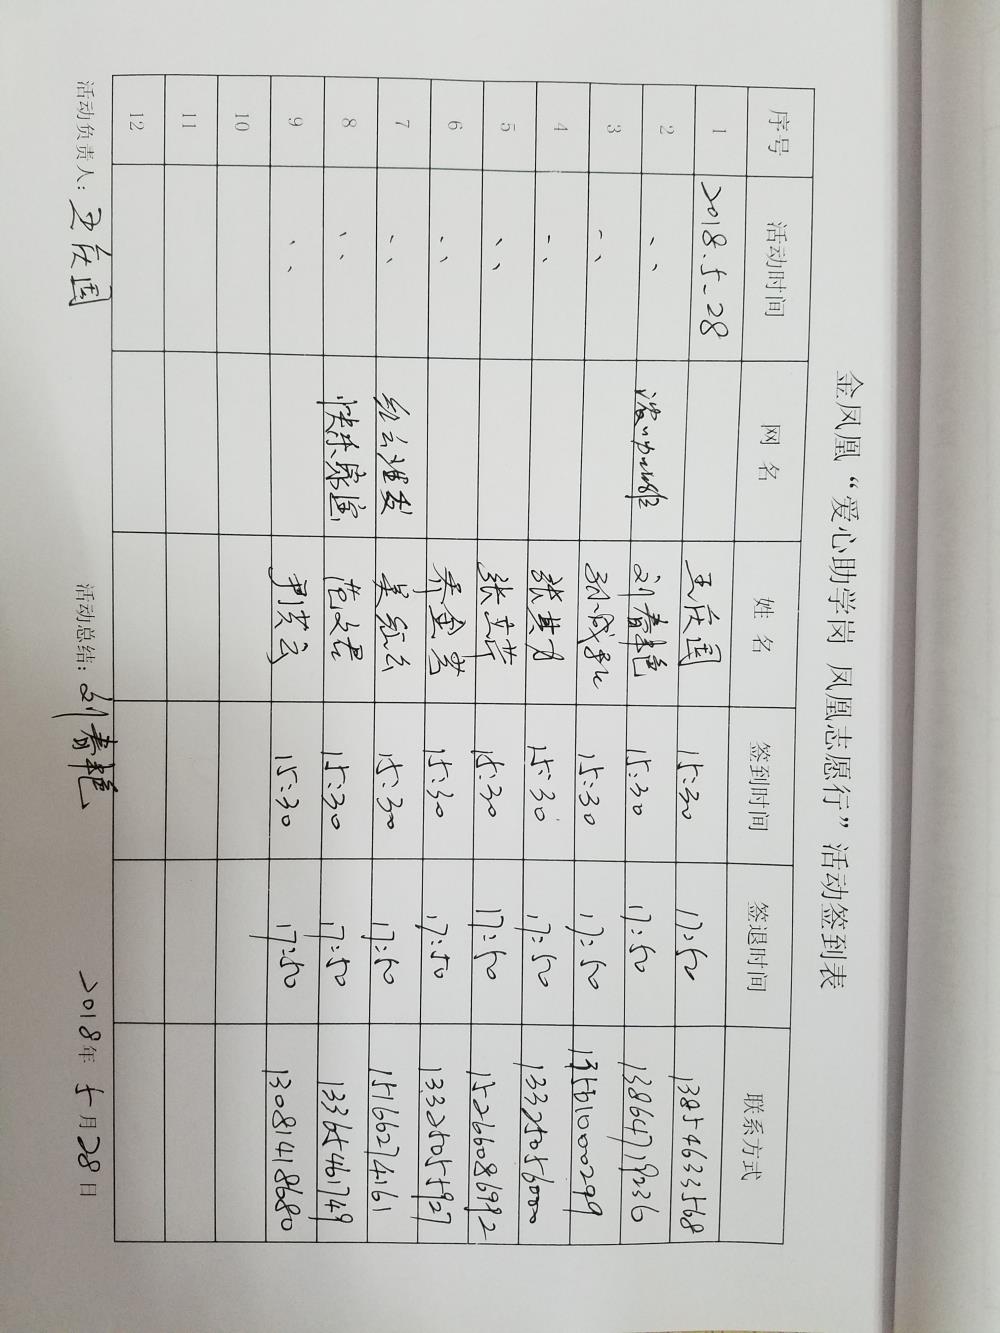 金凤凰“爱心助学岗 凤凰志愿行”活动签到表
序号 活动时间 网 名 姓 名 签到时间 签退时间 联系方式
1 2018.5.28 王庆国 15:30 17:50 13854633568
2 、、 刘春艳 15:30 17:50 13864719236
3 、、 15:30 17:50 13561000299
4 、、 15:30 17:50 13325056000
5 、、 张立萍 15:30 17:50 15266086992
6 、、 乔金芳 15:30 17:50 13325055927
7 、、 吴红云 15:30 17:50 15166274161
8 、、 快乐家园 范文君 15:30 17:50 13365461749
9 、、 尹兰云 15:30 17:50 13081418680
10
11
12
活动负责人: 王庆国 活动总结: 刘春艳 2018年5月28日